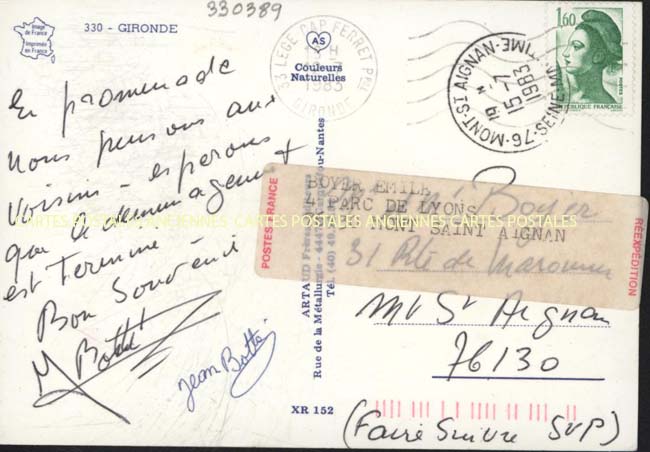 330389
Image de France
Imprimée en France
330 - GIRONDE
AS
Couleurs
Naturelles
33 LEGE CAP FERRET PPAL
1983
GIRONDE
1,60
REPUBLIQUE FRANÇAISE
76-MONT-ST AIGNAN-SEINE-MARITIME
19 H
15-7
1983
En promenade
nous pensons aux
voisins - esperons
que le demenagement
est terminé -
Bon Souvenir
M Botté
Jean Botté
ARTAUD Frères
Rue de la Métallurgie - 44
Tél. (40) 49.
ou-Nantes
XR 152
POSTES FRANCE
BOYER EMILE
4 PARC DE LYONS
MONT SAINT AIGNAN
REEXPÉDITION
Boyer
31 Rte de Maromme
Mt St Aignan
76130
(Faire Suivre SVP)
CARTES POSTALES ANCIENNES CARTES POSTALES ANCIENNES CARTES POSTALES ANCIENNES